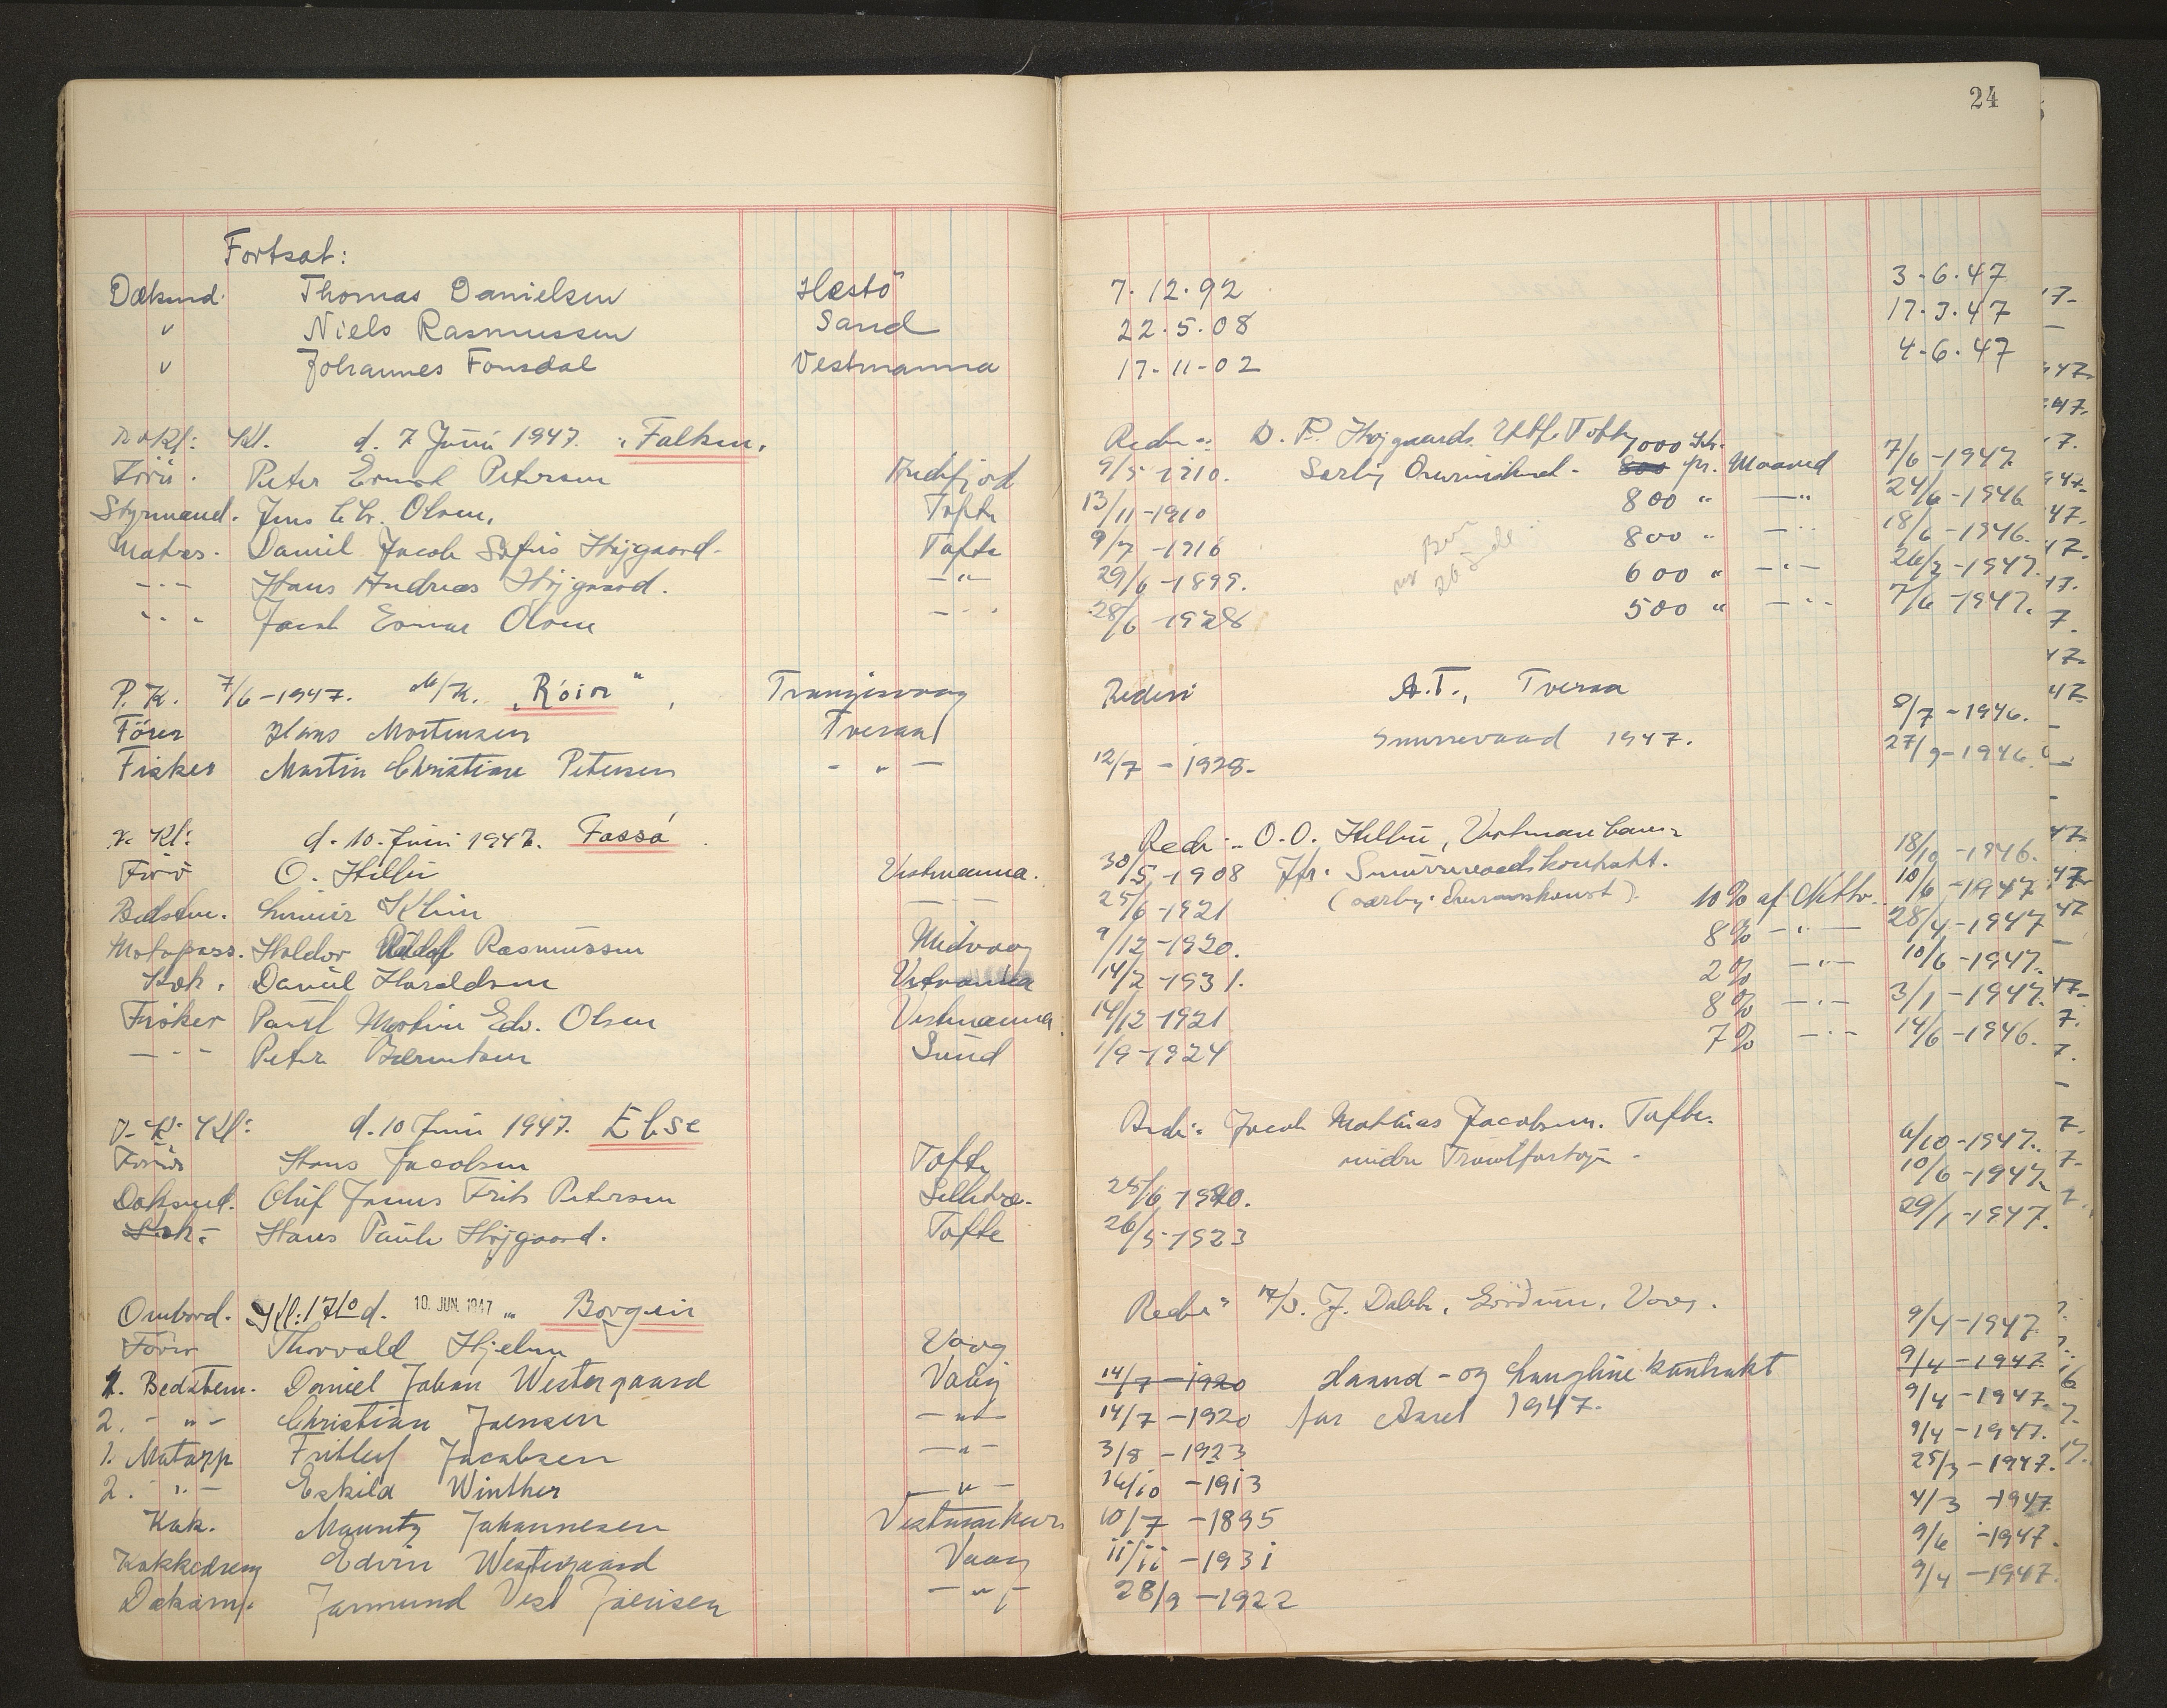 24
Fortsat:
Dæksmd. Thomas Danielsen Hestö 7.12.92 3-6.47
" Niels Rasmussen Sand 22.5.08 17.3.47
" Johannes Fonsdal Vestmanna 17-11-02 4-6.47
Kl. d. 7 Juni 1947. "Falken" Reder: D. P. Højgaards Tofte
Förer. Peter Ernst Petersen 9/5-1910. Særlig 1000 Kr. 800 pr. Maaned 7/6-1947
Styrmand. Jens Chr. Olsen. Tofte 13/11-1910 800 " —"— 24/6-1946
Matros. Daniel Jacob Højgaard. Tofte 9/7-1916 800 " —"— 18/6-1946.
—"— Hans Andreas Højgaard. —"— 29/6-1899. 600 " —"— 26/2-1947.
—"— Jacob Olsen —"— 28/6-1928 500 " —"— 7/6-1947.
P. K. 7/6-1947. M/K. "Róin", Trangisvaag Rederi A.T., Tveraa
Förer Hans Mortensen Tveraa Snurrevaad 1947. 8/7-1946.
Fisker Martin Christian Petersen —"— 12/7-1928- 27/9-1946.
Kl: d. 10. Juni 1947. Fossá Reder: O.O. Hellur, Vestmanhavn
Förer O. Hellur Vestmanna. 30/5-1908 Jfr. Snurrevaadskontrakt. 18/10-1946.
Bedstm. Klein —"— 25/6-1921 10% af Netto. 10/6-1947
Motorpass. Haldor Rasmussen Midvaag 9/12-1920. 8% —"— 28/4-1947
Kok. Daniel Haraldsen 14/2-1931. 2% —"— 10/6-1947.
Fisker Poul Martin Edv. Olsen Vestmanna. 14/12-1921 8% —"— 3/1-1947.
—"— Peter Sund 1/9-1924 7% —"— 14/6-1946.
Kl: d. 10 Juni 1947. Else Reder: Jacob Mathias Jacobsen. Tofte.
Förer Hans Jacobsen Tofte 6/10-1947.
Daksmd. Oluf Frits Petersen 10/6-1947
Kok: Hans Pauli Højgaard. Tofte 26/5-1923 29/1-1947.
Ombord. Kl: 17 10 d. 10. JUN. 1947 " Borgin Reder:
Förer Thorvald Hjelm Vaag 9/4-1947
1. Bedstem. Daniel Johan Westergaard Vaag 14/7-1920 Haand- og Langlinekontrakt 9/4-1947
2. —"— Christian Joensen —"— 14/7-1920 for Aaret 1947. 9/4-1947.
1. Motorp Fritleif Jacobsen —"— 3/8-1923 9/4-1947.
2. —"— Eskild Winther —"— 16/10-1913 25/3-1947.
Kok. Mauritz Johannesen 10/7-1895 4/3-1947
Kokkedreng Edvin Westergaard Vaag 11/11-1931 9/6-1947.
Dæksm. Jarmund Vest Joensen —"— 28/9-1922 9/4-1947.